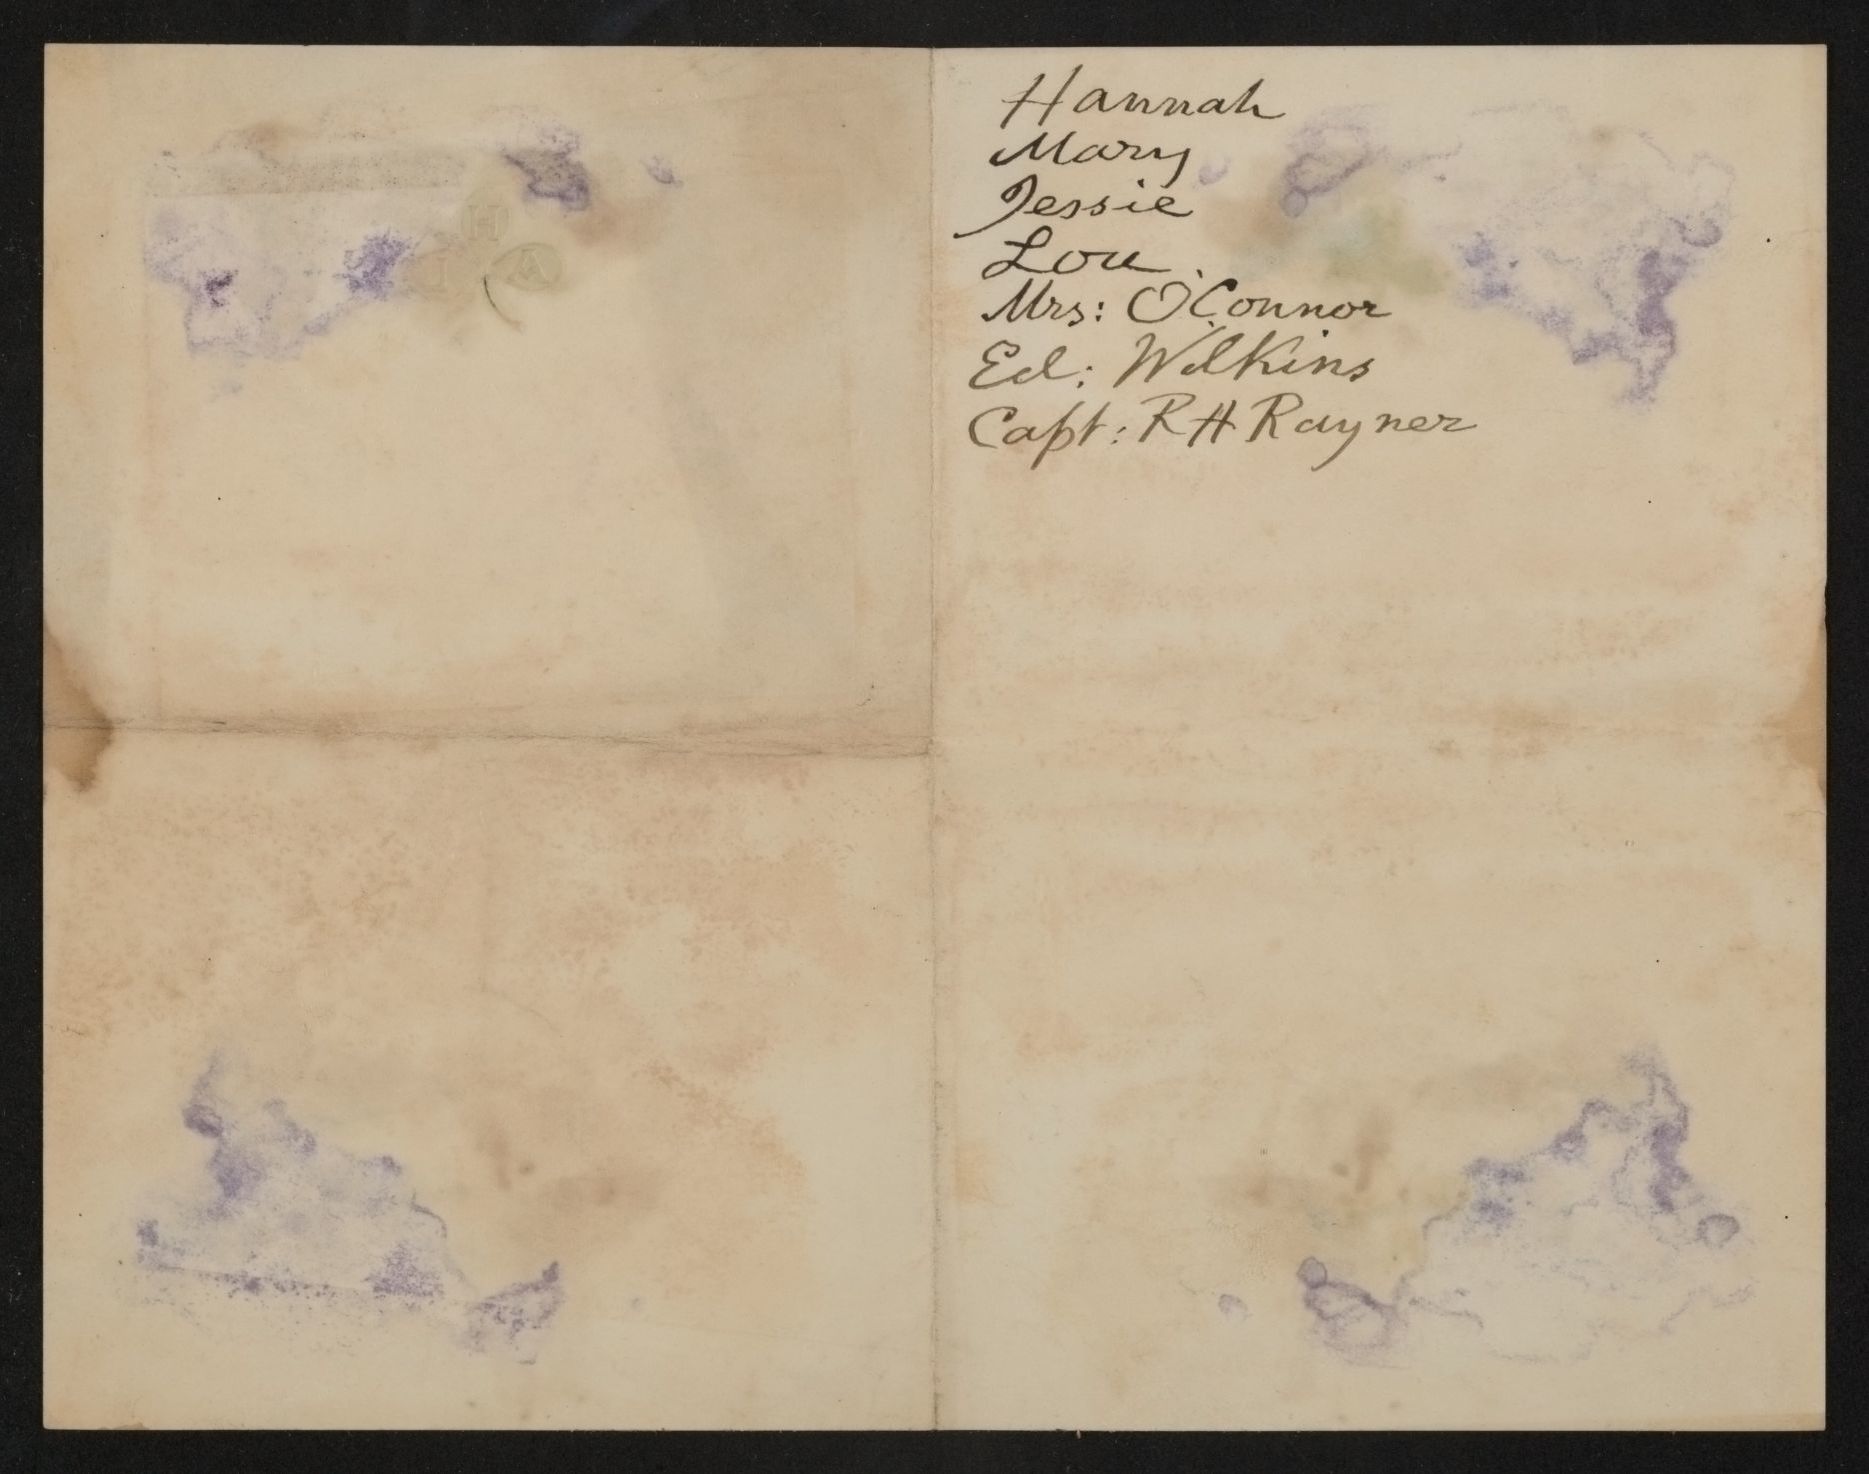 H
I A
Hannah
Mary
Jessie
Lou.
Mrs: O'Connor
Ed: Wilkins
Capt: R H Rayner